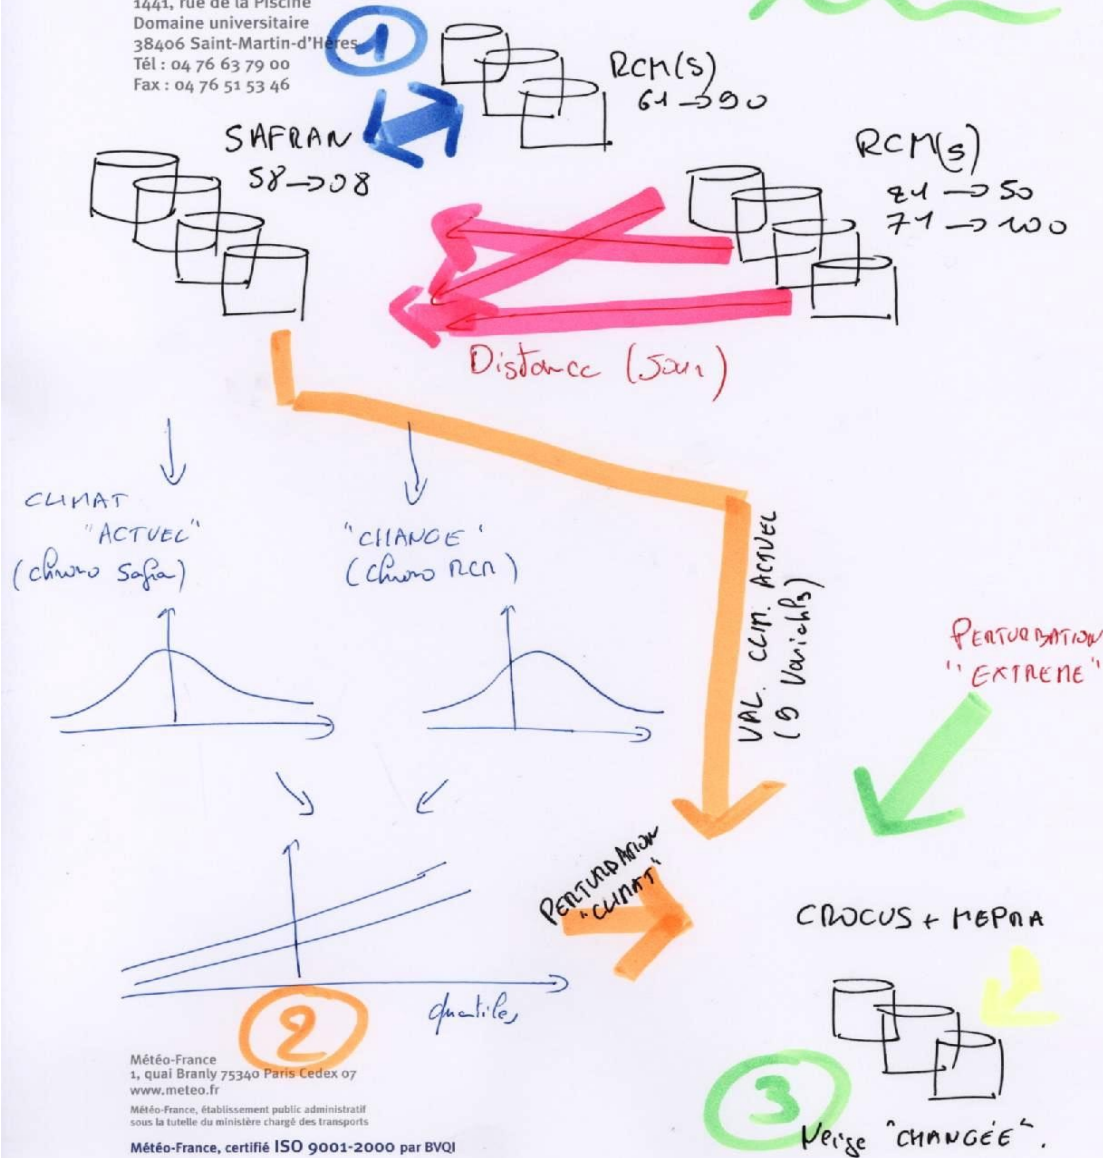 1441, rue de la Piscine
Domaine universitaire
38406 Saint-Martin-d'Hères
Tél : 04 76 63 79 00
Fax : 04 76 51 53 46
1
RCM(s)
61→90
SAFRAN
58→08
RCM(s)
21→50
71→100
Distance (Jour)
CLIMAT
"ACTUEL"
(chrono Safran)
"CHANGE"
(chrono RCM)
VAL. CLIM. ACTUEL
PERTURBATION
"EXTREME"
PERTURBATION
"CLIMAT"
CROCUS + MEPRA
quantiles
2
3
Neige "CHANGÉE".
Météo-France
1, quai Branly 75340 Paris Cedex 07
www.meteo.fr
Météo-France, établissement public administratif
sous la tutelle du ministère chargé des transports
Météo-France, certifié ISO 9001-2000 par BVQI